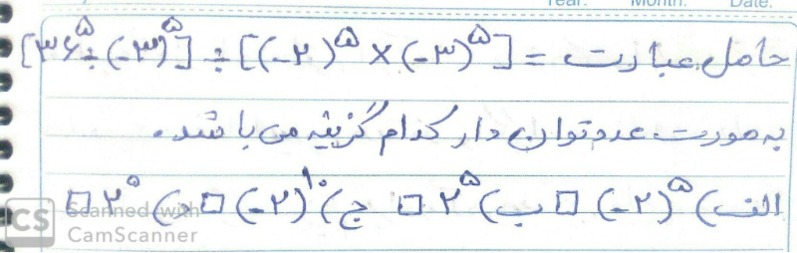 Year. Month. Date.
[۳۶^۵ ÷ (-۳)^۵] ÷ [(-۲)^۵ × (-۳)^۵] = حاصل عبارت
به صورت عدد توان دار کدام گزینه می باشد.
الف) (-۲)^۵ □ ب) ۲^۵ □ ج) (-۲)^۱۰ □ د) ۲^۰ □
CS Scanned with
CamScanner